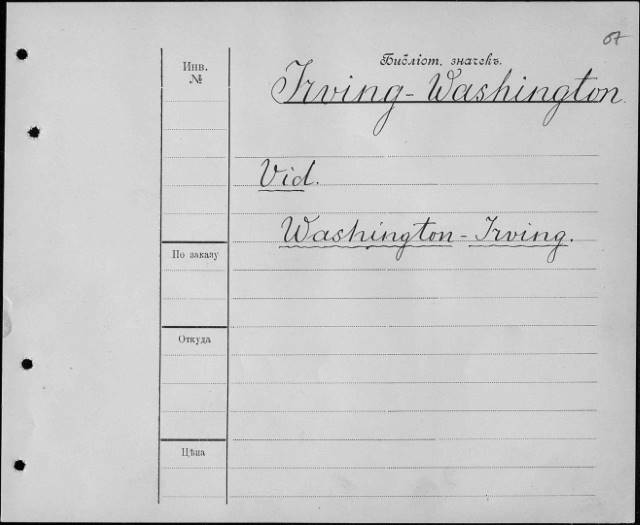 67
Библіот. значекъ.
Инв.
№
Irving-Washington.
Vid.
Washington-Irving.
По заказу
Откуда
Цѣна